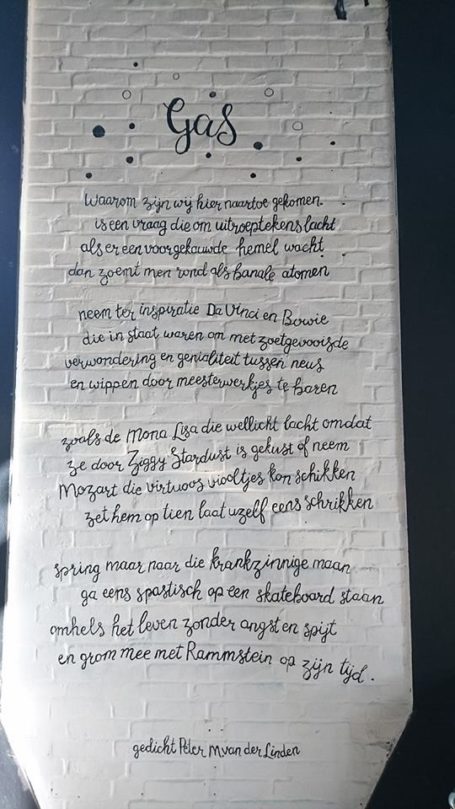 Gas
Waarom zijn wij hier naartoe gekomen.
is een vraag die om uitroeptekens lacht
als er een voorgekauwde hemel wacht
dan zoemt men rond als banale atomen
neem ter inspiratie Da Vinci en Bowie
die in staat waren om met zoetgevooisde
verwondering en genialiteit tussen neus
en wippen door meesterwerkjes te baren
zoals de Mona Lisa die wellicht lacht omdat
ze door Ziggy Stardust is gekust of neem
Mozart die virtuoos viooltjes kon schikken
zet hem op tien laat uzelf eens schrikken
spring maar naar die krankzinnige maan
ga eens spastisch op een skateboard staan
omhels het leven zonder angst en spijt
en grom mee met Rammstein op zijn tijd.
gedicht Peter M van der Linden